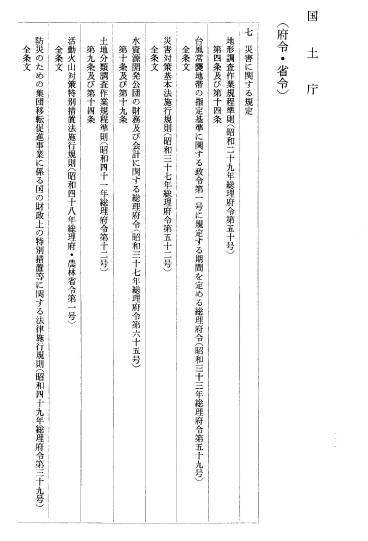 国土庁
（府令・省令）
七 災害に関する規定
地形調査作業規程準則（昭和二十九年総理府令第五十号）
第四条及び第十四条
台風常襲地帯の指定基準に関する政令第一号に規定する期間を定める総理府令（昭和三十三年総理府令第五十九号）
全条文
災害対策基本法施行規則（昭和三十七年総理府令第五十二号）
全条文
水資源開発公団の財務及び会計に関する総理府令（昭和三十七年総理府令第六十五号）
第十条及び第十九条
土地分類調査作業規程準則（昭和四十一年総理府令第十二号）
第九条及び第十四条
活動火山対策特別措置法施行規則（昭和四十八年総理府・農林省令第一号）
全条文
防災のための集団移転促進事業に係る国の財政上の特別措置等に関する法律施行規則（昭和四十九年総理府令第三十九号）
全条文